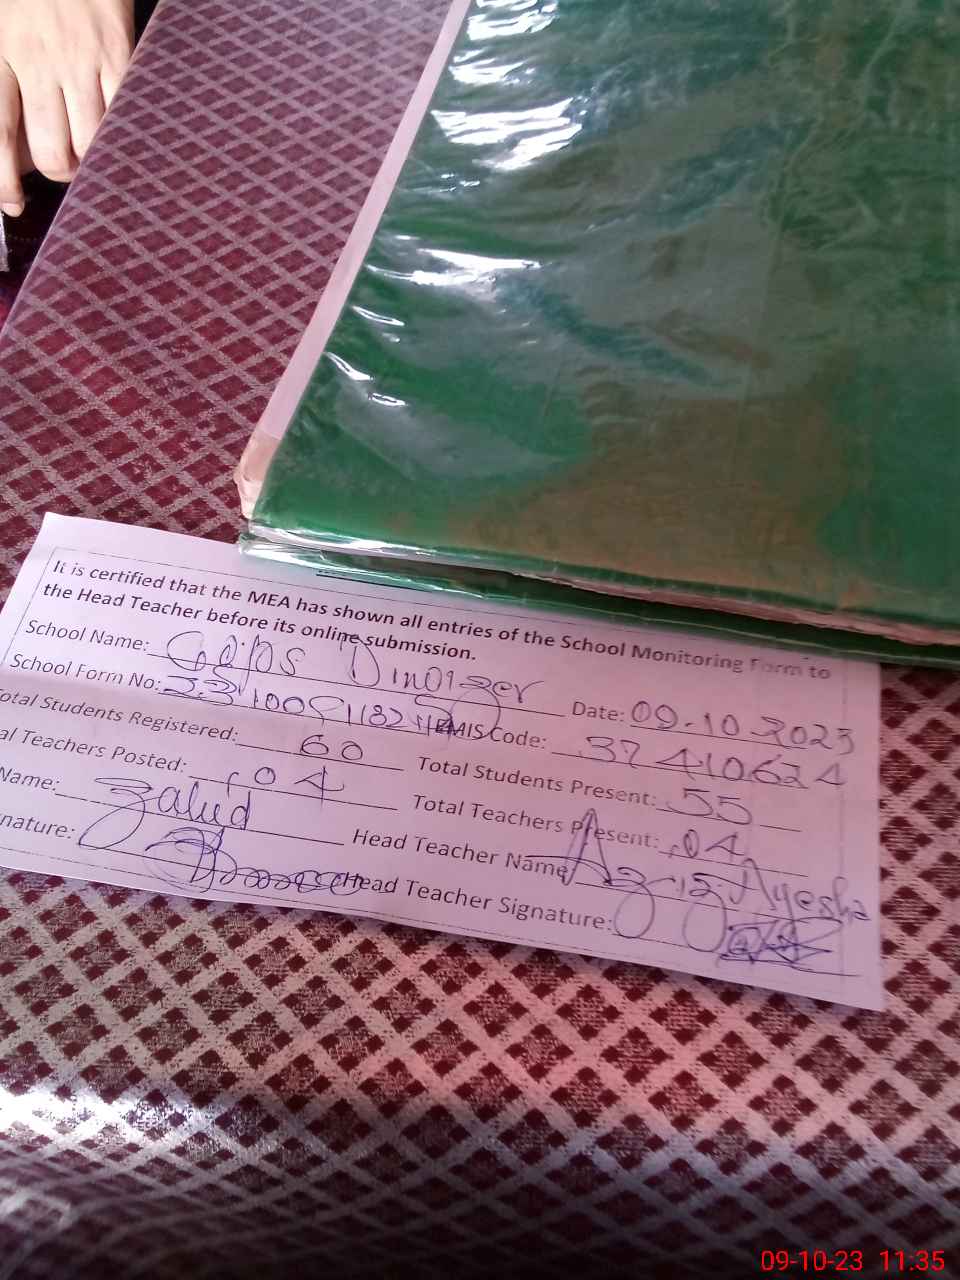 It is certified that the MEA has shown all entries of the School Monitoring Form to
the Head Teacher before its online submission.
School Name: GGPS
Date: 09.10.2023
School Form No:
EMIS Code: 37410624
Total Students Registered: 60
Total Students Present: 55
al Teachers Posted: 04
Total Teachers Present: 04
Name: Zahid
Head Teacher Name: Ayesha
nature:
Head Teacher Signature:
09-10-23 11:35